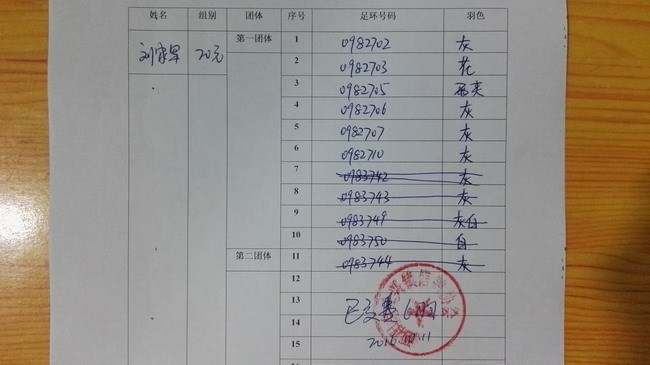 姓名 组别 团体 序号 足环号码 羽色
刘家军 20元 第一团体 1 0982702 灰
2 0982703 花
3 0982705
4 0982706 灰
5 0982707 灰
6 0982710 灰
7 0983742 灰
8 0983743 灰
9 0983749 灰白
10 0983750 白
第二团体 11 0983744 灰
12
13 已交费
14
15 2016.11.11